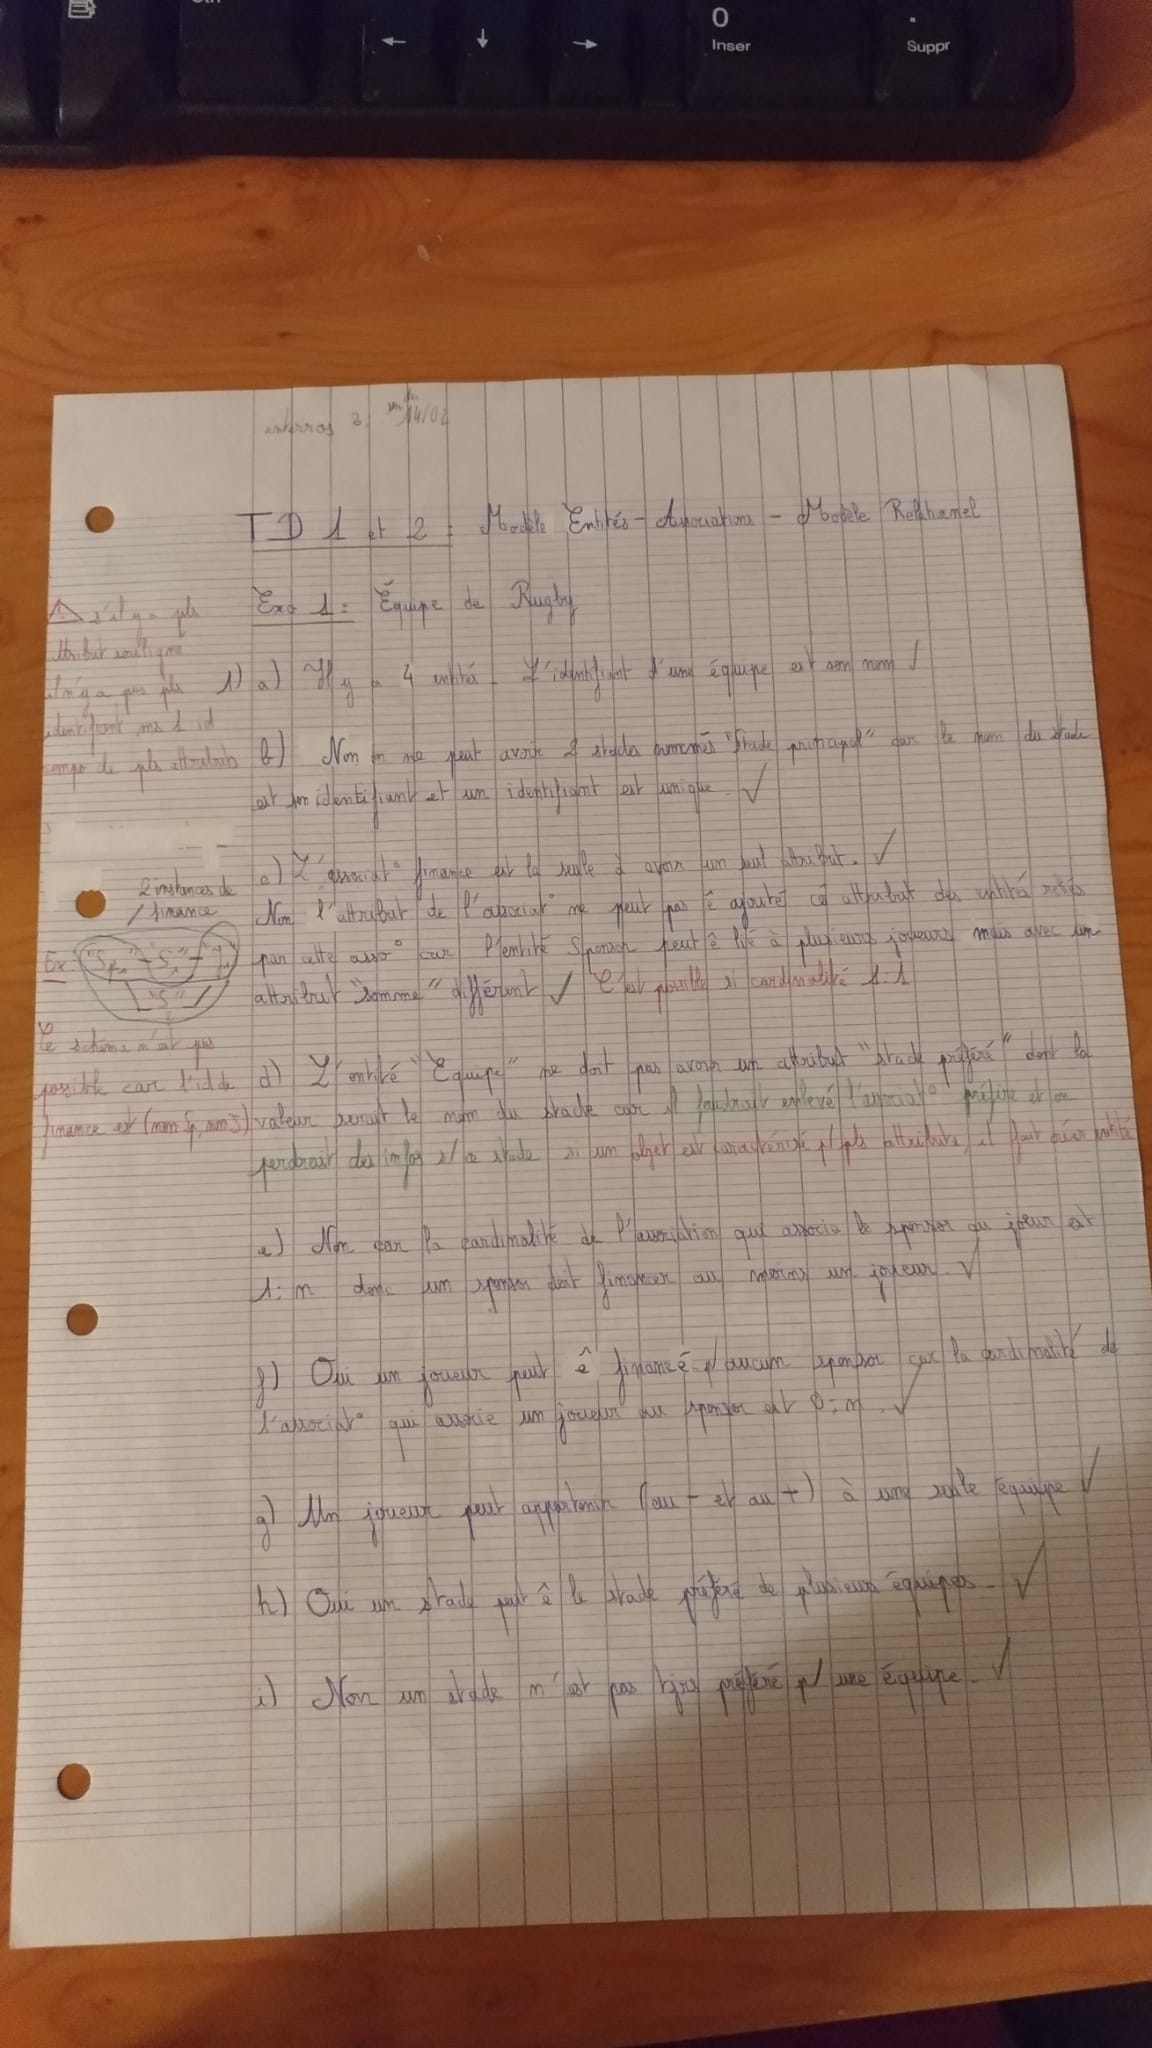 0
Inser
.
Suppr
interros 3, 14/02
TD 1 et 2 : Modèle Entités-Associations - Modèle Relationnel
⚠ s'il y a pls
attribut souligné
il n'y a pas pls
identifiant ms 1 id
compo de pls attributs
Exo 1 : Équipe de Rugby
1) a) Il y a 4 entités. L'identifiant d'une équipe est son nom ✓
b) Non on ne peut avoir 2 stades nommés "Stade principal" car le nom du stade
est son identifiant et un identifiant est unique ✓
c) L'associat° finance est la seule à avoir un seul attribut. ✓
Non l'attribut de l'associat° ne peut pas ê ajouté cô attribut des entités reliés
par cette asso° car l'entité Sponsor peut ê lié à plusieurs joueurs mais avec un
attribut "somme" différent ✓ C'est possible si cardinalité 1.1
2 instances de
finance
Ex:
Ce schéma n'est pas
possible car l'id de
finance est (nom Sp, nom J)
d) L'entité "Equipe" ne doit pas avoir un attribut "stade préféré" dont la
valeur serait le nom du stade car il faudrait enlevé l'associat° préfère et on
perdrait des infos s/ ce stade si un objet est caractérisé p/ pls attributs, il faut créer entité
e) Non car la cardinalité de l'association qui associe le sponsor au joueur est
1:n donc un sponsor doit financer au moins un joueur. ✓
f) Oui un joueur peut ê financé p/ aucun sponsor car la cardinalité de
l'associat° qui associe un joueur au sponsor est 0:n. ✓
g) Un joueur peut appartenir (au - et au +) à une seule équipe ✓
h) Oui un stade peut ê le stade préféré de plusieurs équipes. ✓
i) Non un stade n'est pas tjrs préféré p/ une équipe. ✓